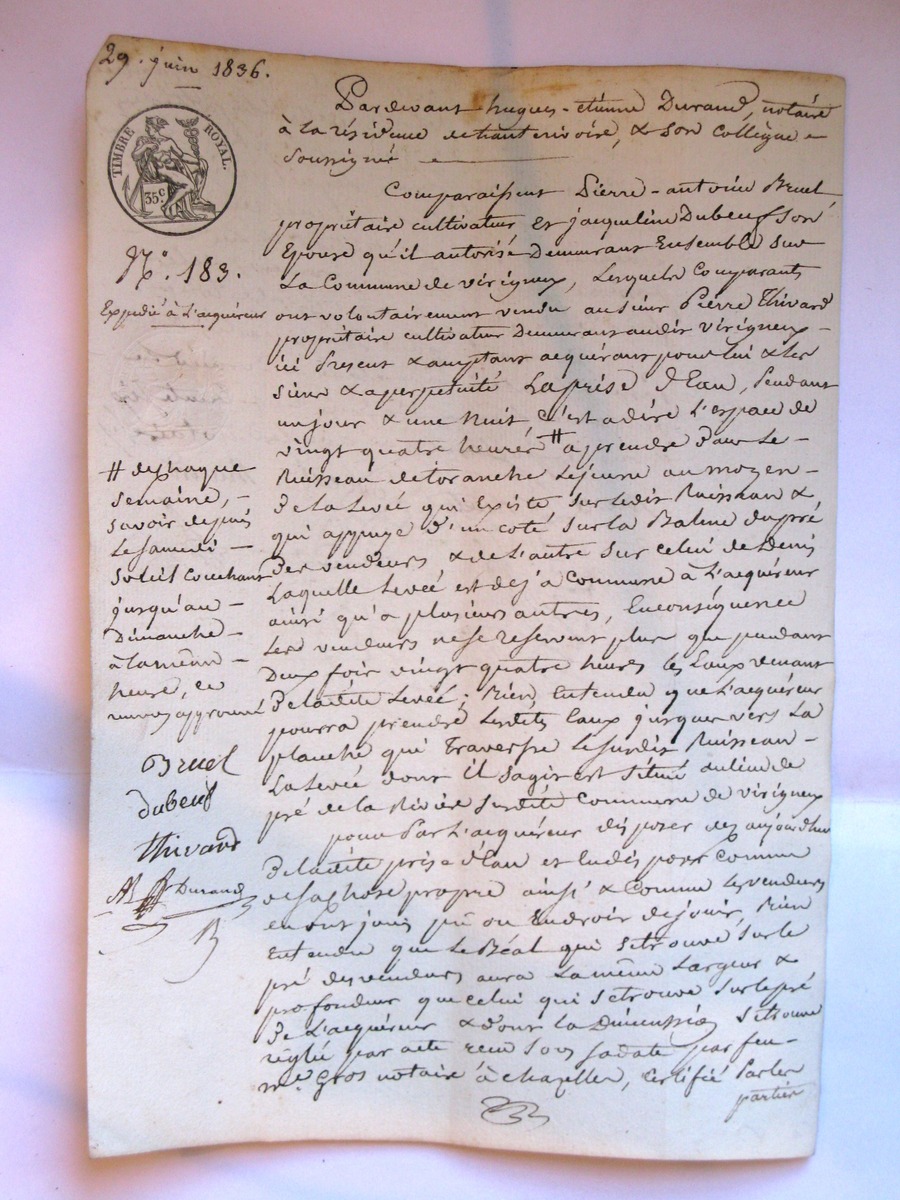 29. juin 1836.
TIMBRE ROYAL.
35 c.
N.° 183.
Expédié à L'acquéreur
Pardevant hugues-étienne Durand, notaire
à La résidence de hauterivoire, & son collègue
soussigné
Comparaissent Pierre-antoine Bruel
propriétaire cultivateur et jacqueline Dubeuf son
Epouse qu'il autorise Demeurant Ensemble sur
La Commune de virigneux, Lesquels Comparants
ont volontairement vendu au sieur Pierre Thivard
propriétaire cultivateur Demeurant audit virigneux
ici Present & acceptant acquérant pour lui & les
siens & a perpétuité La prise d'Eau, Pendant
un jour & une Nuit c'est a dire L'espace de
vingt quatre heures # a prendre Dans Le
Ruisseau de toranche Lejeune au moyen
De La Levée qui Existe sur Ledit Ruisseau &
qui appuye d'un coté sur La Balme du pré
Des vendeurs, & de L'autre sur celui de Denis
Laquelle Levée est déjà Commune à L'acquéreur
ainsi qu'a plusieurs autres, En conséquence
Les vendeurs ne se reservent plus que pendant
Deux fois vingt quatre heures les Eaux venant
De ladite Levée; Bien Entendu que L'acquéreur
pourra prendre Lesdites Eaux jusques vers La
planche qui Traverse Le susdit Ruisseau
La Levée dont il s'agit est située au lieu de
pré de la Rivière susdite Commune de virigneux
pour Par L'acquéreur disposer dez aujourd'hui
De ladite prise d'Eau et Ludit pour comme
de sa chose propre ainsi & comme Les vendeurs
en ont joui pu ou En droit de jouir, Bien
Entendu que Le Béal qui se trouve sur le
pré des vendeurs aura La même Largeur &
profondeur que celui qui se trouve sur le pré
De L'acquéreur & dont la Dimension se trouve
réglée par acte recu sous sa date par feu
m.e Gros notaire à chazelles, Certifié Par les
parties
# de chaque
semaine,
savoir depuis
Le samedi
soleil couchant
jusqu'au
Dimanche
à la même
heure, ce
renvoi approuvé
Bruel
dubeuf
thivard
Durand